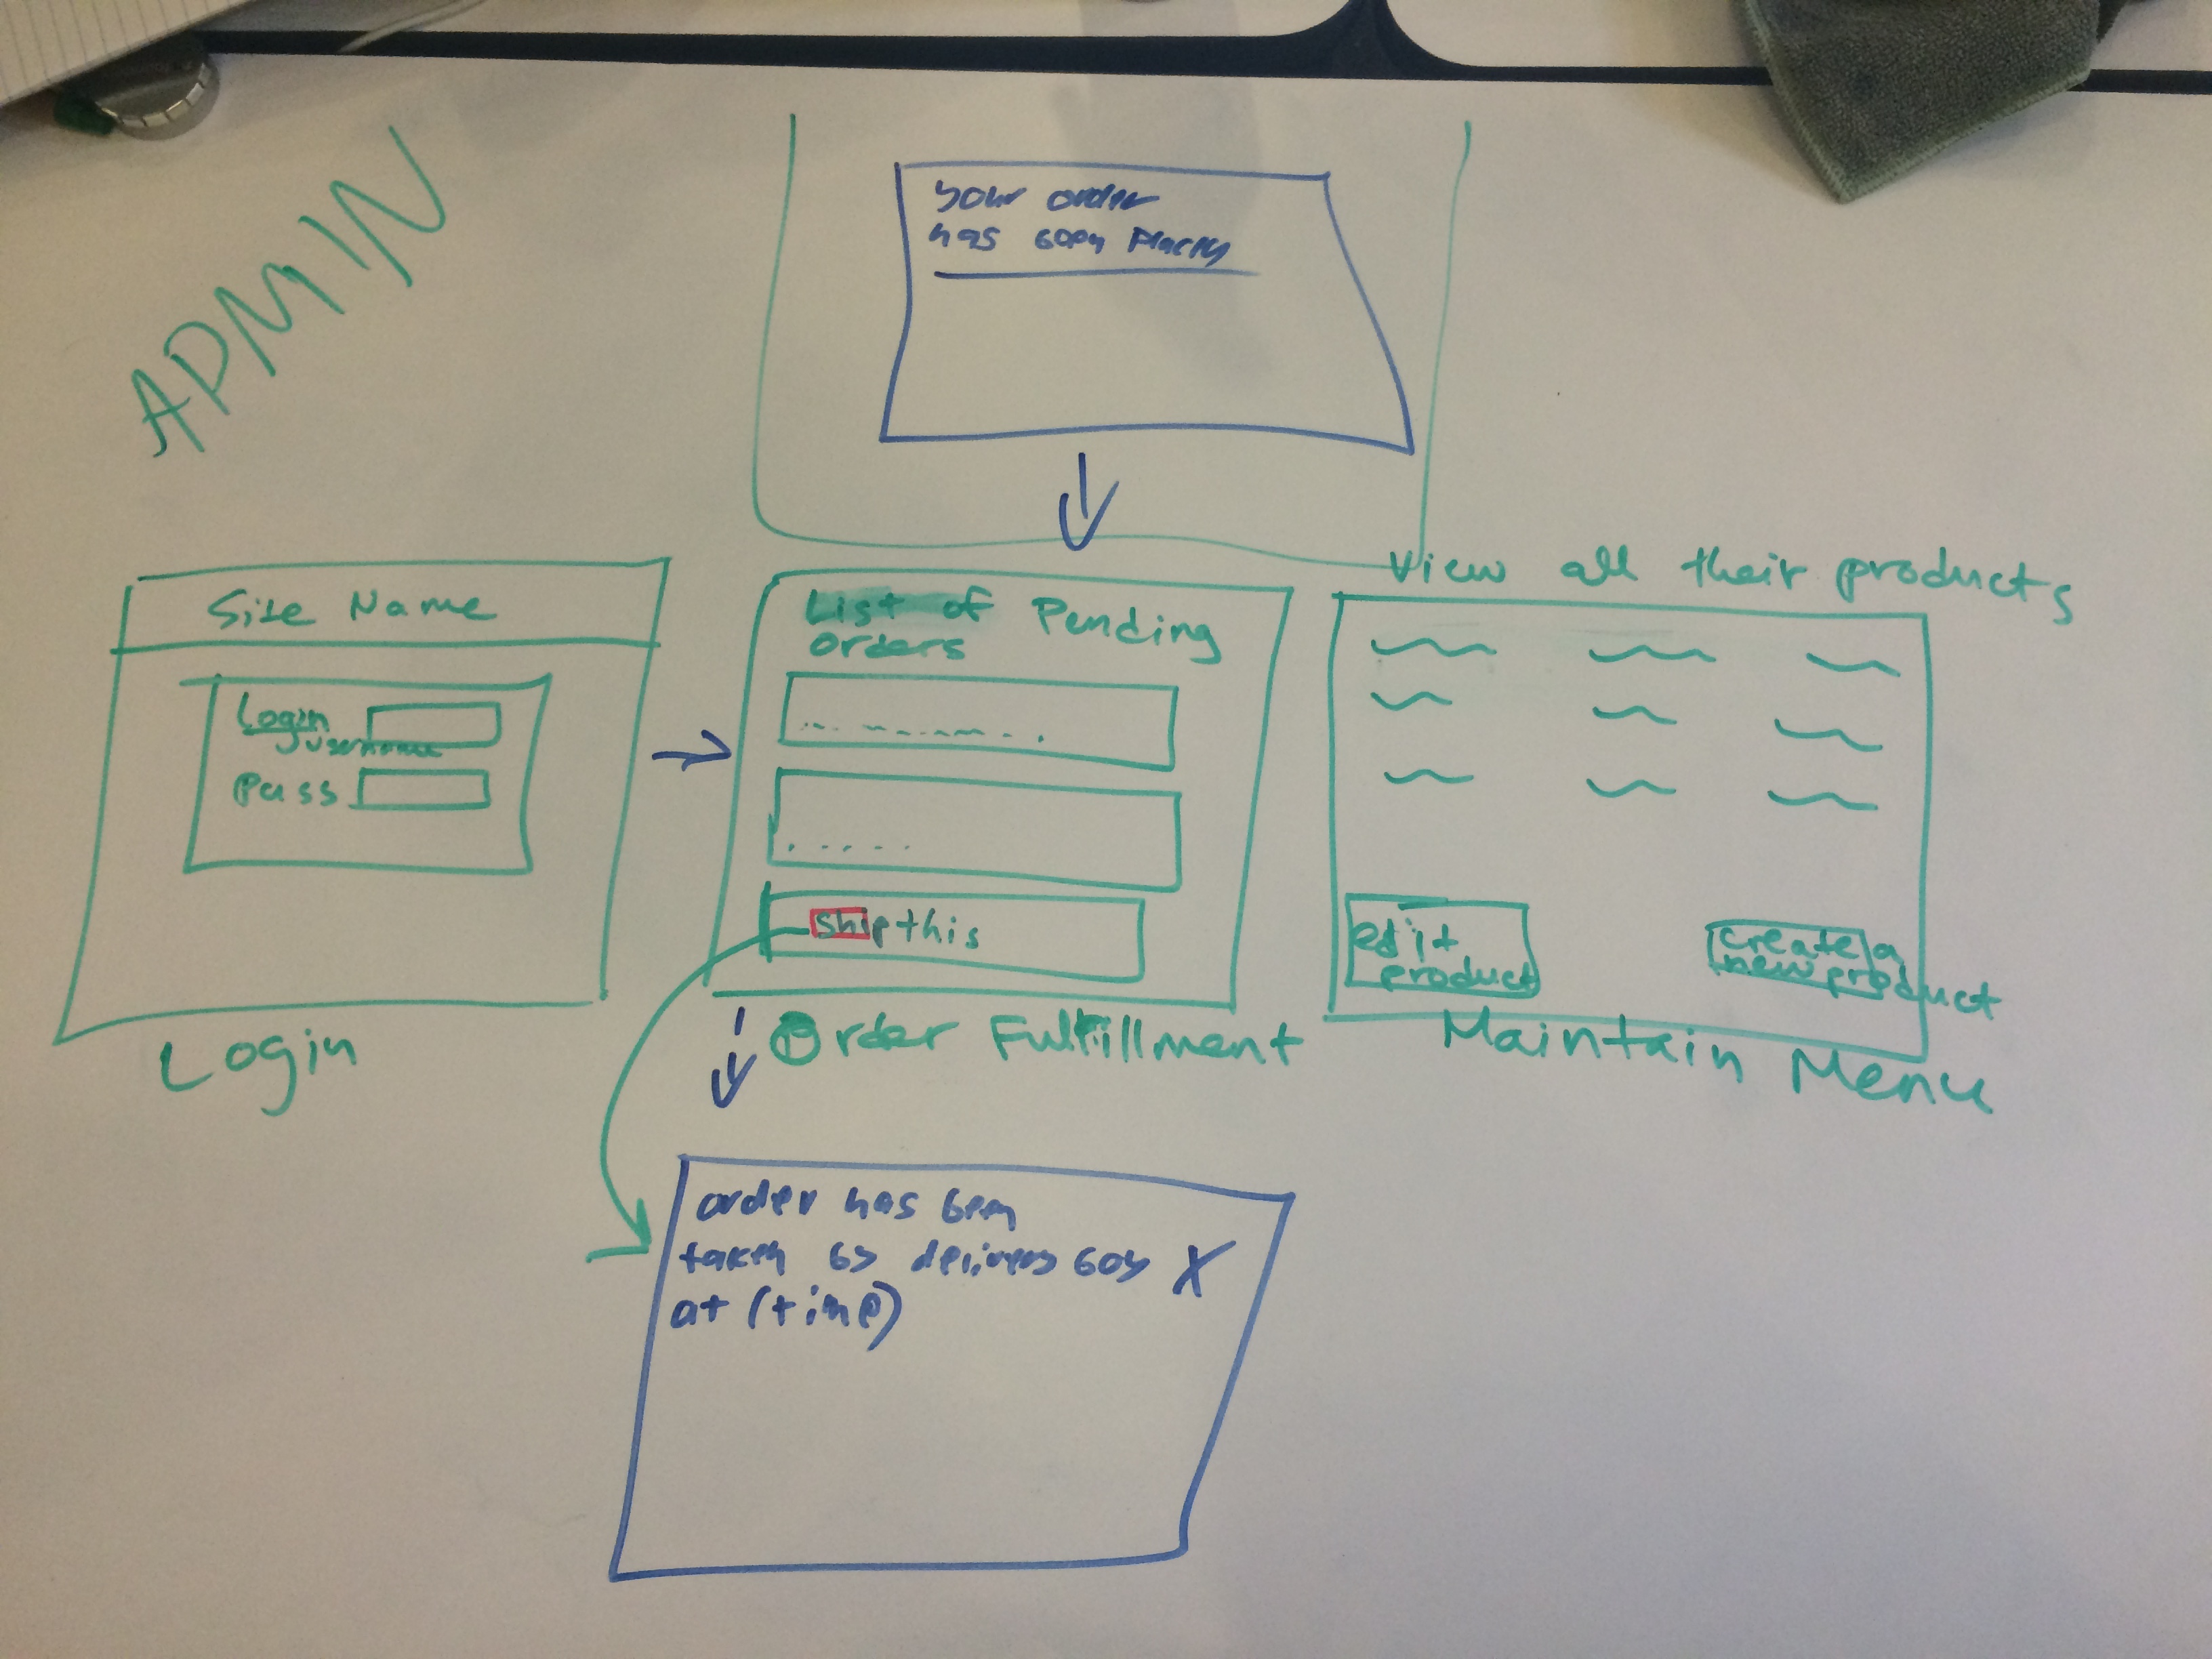 ADMIN
your order
has been placed
Site Name
Login
username
Pass
Login
List of Pending
orders
ship this
Order Fulfillment
View all their products
edit
product
create a
new product
Maintain Menu
order has been
taken by delivery boy X
at (time)